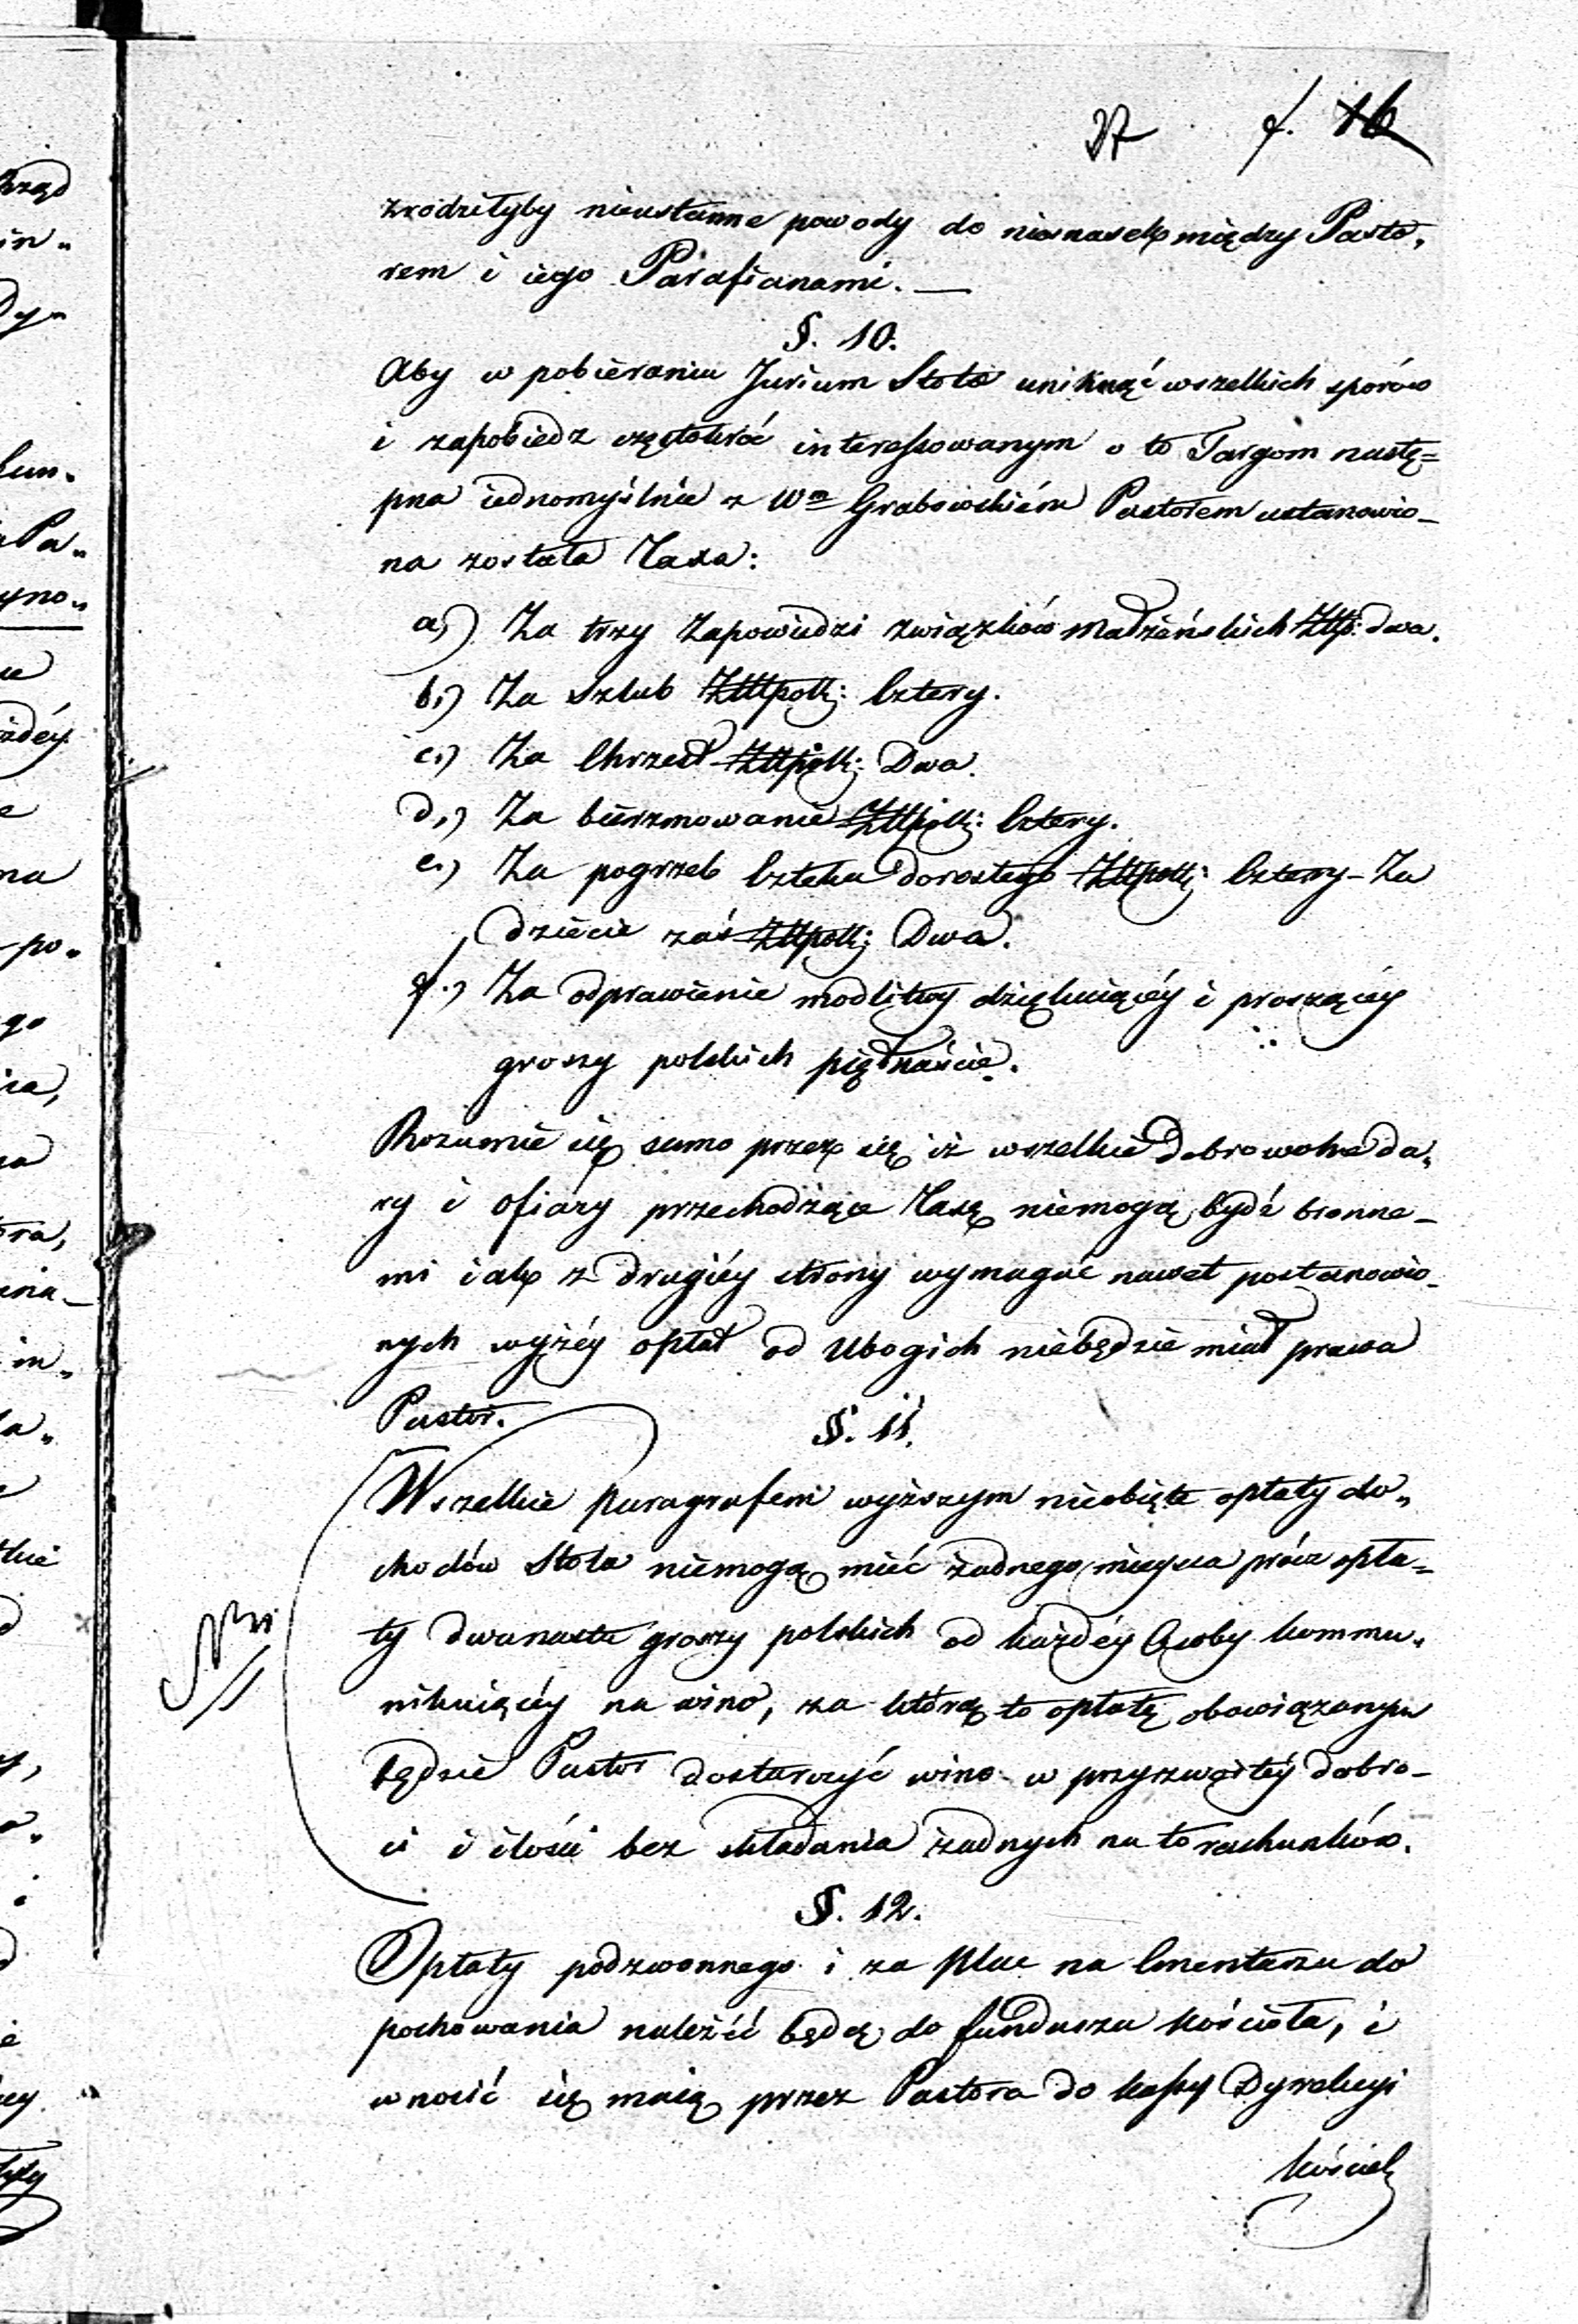 37 f. 16
zrodziłyby nieustanne powody do niesnasek między Pasto„
rem i iego Parafianami. —
§. 10.
Aby w pobieraniu Jurium Stola uniknąć wszelkich sporów
i zapobiedz częstokroć interessowanym o to Targom nastę=
pna iednomyślnie z Wm Grabowskiém Pastorem ustanowio_
na została Taxa:
a,) Za trzy Zapowiedzi związków Małżeńskich Złłp: dwa.
b,) Za Szlub Złłpolk: Cztery.
c,) Za Chrzest Złłpolk: Dwa.
d,) Za bierzmowanie Złłpolk: Cztery.
e,) Za pogrzeb Człeka dorosłego Złłpolk: Cztery – Za
dziécie zaś Złłpolk: Dwa.
f,) Za odprawienie modlitwy dziękuiącéy i proszącéy
groszy polskich piętnaście.
Rozumie się samo przez się iż wszelkie dobrowolne da„
ry i ofiary przechodzące Taxę niemogą bydź bronne_
mi iak z drugiéy strony wymagać nawet postanowio_
nych wyżéy opłat od Ubogich niebędzie miał prawa
Pastor.
§. 11.
Wszelkie paragrafem wyższym nieobięte opłaty do„
chodów Stola niemogą mieć żadnego mieysca prócz opła=
ty dwunastu groszy polskich od każdéy Osoby kommu„
nikuiącéy na wino, za którą to opłatę obowiązanym
będzie Pastor dostarczyć wino w przyzwoitéy dobro_
ci i ilości bez składania żadnych na to rachunków.
§. 12.
Opłaty podzwonnego i za Plac na Cmentarzu do
pochowania należéć będą do funduszu kościoła, i
wnosić się maią przez Pastora do kassy Dyrekcyi
kościel